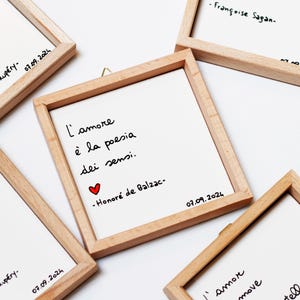 -Françoise Sagan-
07.09.2024
L'amore
è la poesia
dei sensi.
-Honoré de Balzac-
07.09.2024
07.09.2024
L'amore